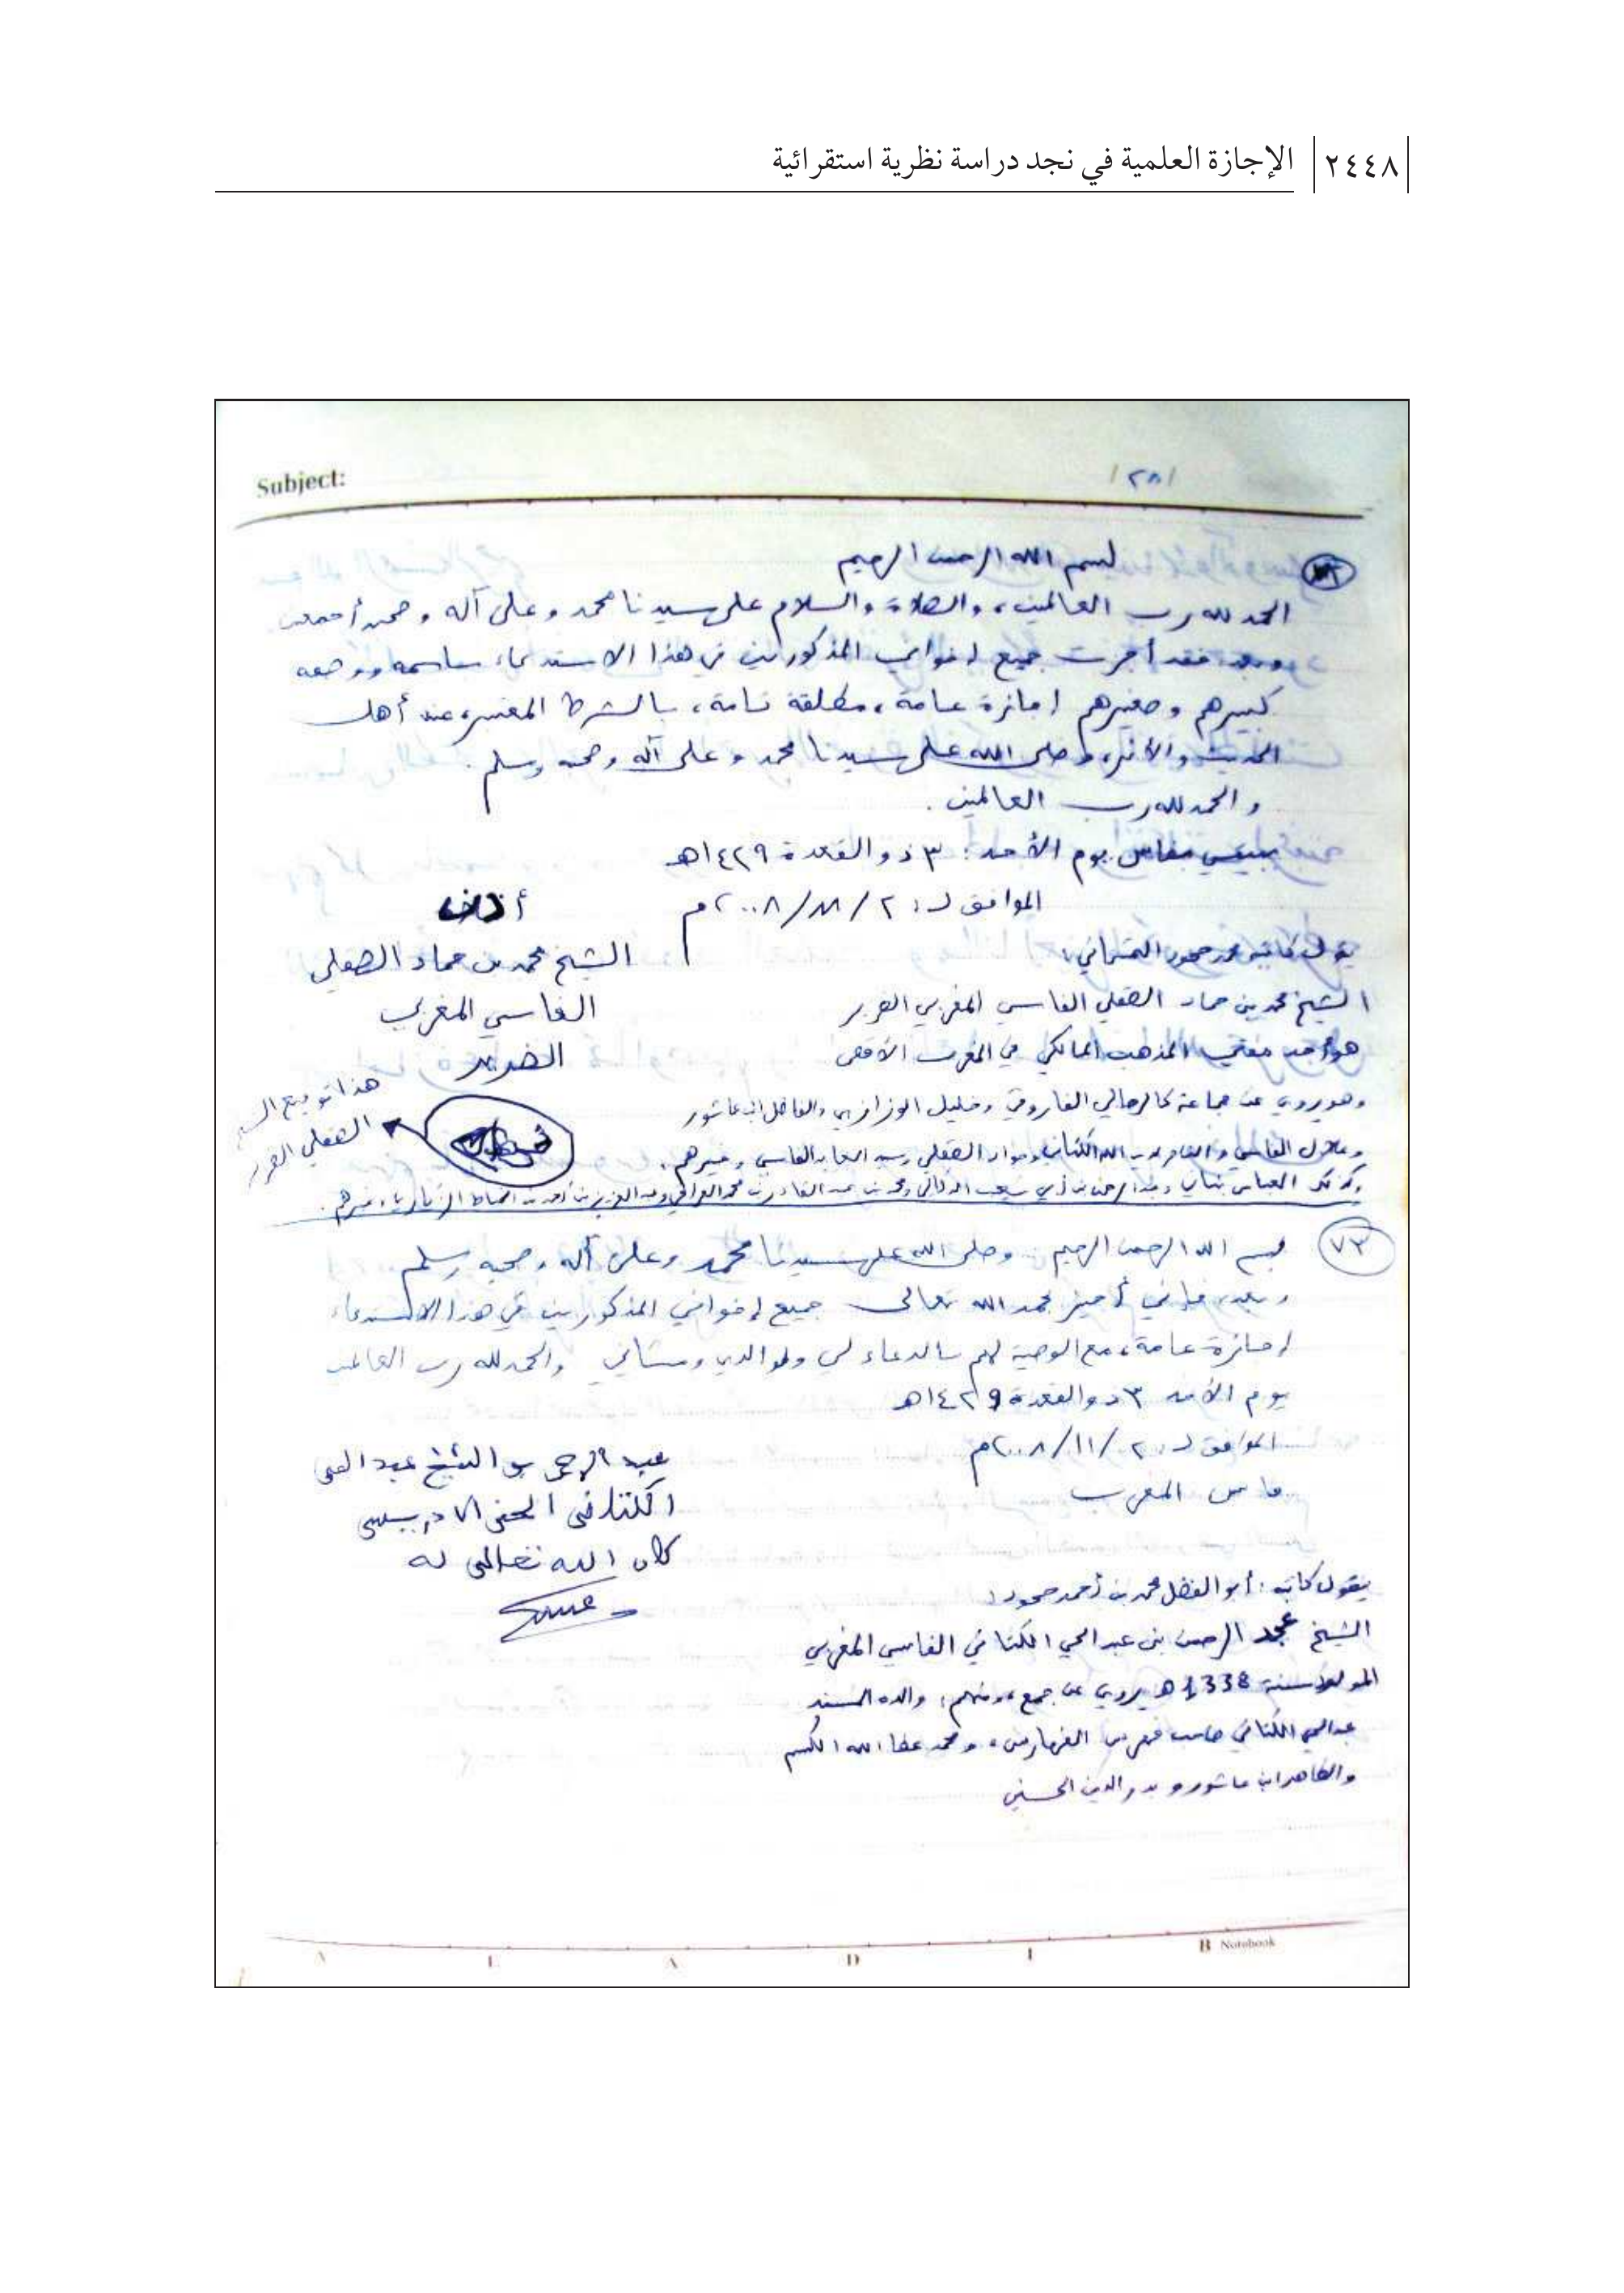 ٢٤٤٨ الإجازة العلمية في نجد دراسة نظرية استقرائية
Subject:
/٢٨١
بسم الله الرحمن الرحيم
الحمد لله رب العالمين، والصلاة والسلام على سيدنا محمد وعلى آله وصحبه أجمعين
وبعد، فقد أجزت جميع إخواني المذكورين في هذا الاستدعاء
كبيرهم وصغيرهم إجازة عامة، مطلقة تامة، بالشرط المعتبر عند أهل
الحديث والأثر، وصلى الله على سيدنا محمد وعلى آله وصحبه وسلم.
والحمد لله رب العالمين.
بفاس يوم الأحد: ٣ ذو القعدة ١٤٢٩هـ
الموافق لـ: ٢ / / ٢٠٠٨م
الشيخ محمد بن حماد الصقلي
الفاسي المغربي
الضرير
يقول كاتبه محمد صحود التمسماني:
الشيخ محمد بن حماد الصقلي الفاسي المغربي الضرير
هو أحد مفتي المذهب المالكي في المغرب الأقصى
وهو يروي عن جماعة كالرحالي الفاروقي وخليل الورزازي والفاضل ابن عاشور
وعلال الفاسي و الكتاني وجواد الصقلي الفاسي وغيرهم.
وكذلك العباس بناني وعبد الرحمن بن أبي شعيب الدكالي ومحمد بن عبد القادر بن محمد العراقي وعبد العزيز بن أحمد بن الخياط الزكاري وغيرهم.
هذا توقيع
الصقلي الضرير
٧٣
بسم الله الرحمن الرحيم وصلى الله على سيدنا محمد وعلى آله وصحبه وسلم
وبعد، فإني أجيز بحمد الله تعالى جميع إخواني المذكورين في هذا الاستدعاء
إجازة عامة، مع الوصية لهم بالدعاء لي ولوالدي ومشايخي والحمد لله رب العالمين
يوم الأحد ٣ ذو القعدة ١٤٢٩هـ
الموافق لـ: ٠٢/١١/٢٠٠٨م
فاس المغرب
عبد الرحمن بن الشيخ عبد الحي
الكتاني الحسني الادريسي
كان الله تعالى له
يقول كاتبه: أبو الفضل محمد بن أحمد صحود:
الشيخ عبد الرحمن بن عبد الحي الكتاني الفاسي المغربي
المولود سنة 1338 هـ يروي عن جمع، منهم: والده المسند
عبد الحي الكتاني صاحب فهرس الفهارس، ومحمد عطاء الله الكسم
والطاهر ابن عاشور و بدر الدين الحسني
Notebook